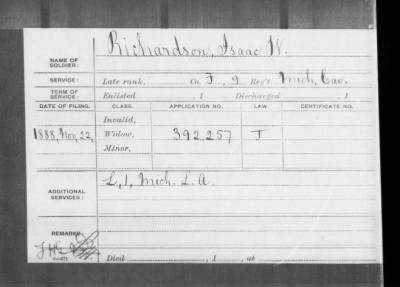 NAME OF SOLDIER: Richardson, Isaac W.
SERVICE: Late rank, Co. F, 9 Reg't Mich. Cav.
TERM OF SERVICE: Enlisted , 1 Discharged , 1
DATE OF FILING. CLASS. APPLICATION NO. LAW. CERTIFICATE NO.
Invalid,
1888, Nov. 22, Widow, 392.257 J
Minor,
ADDITIONAL SERVICES: L, 1, Mich. L. A.
REMARKS:
Died , 1 , at